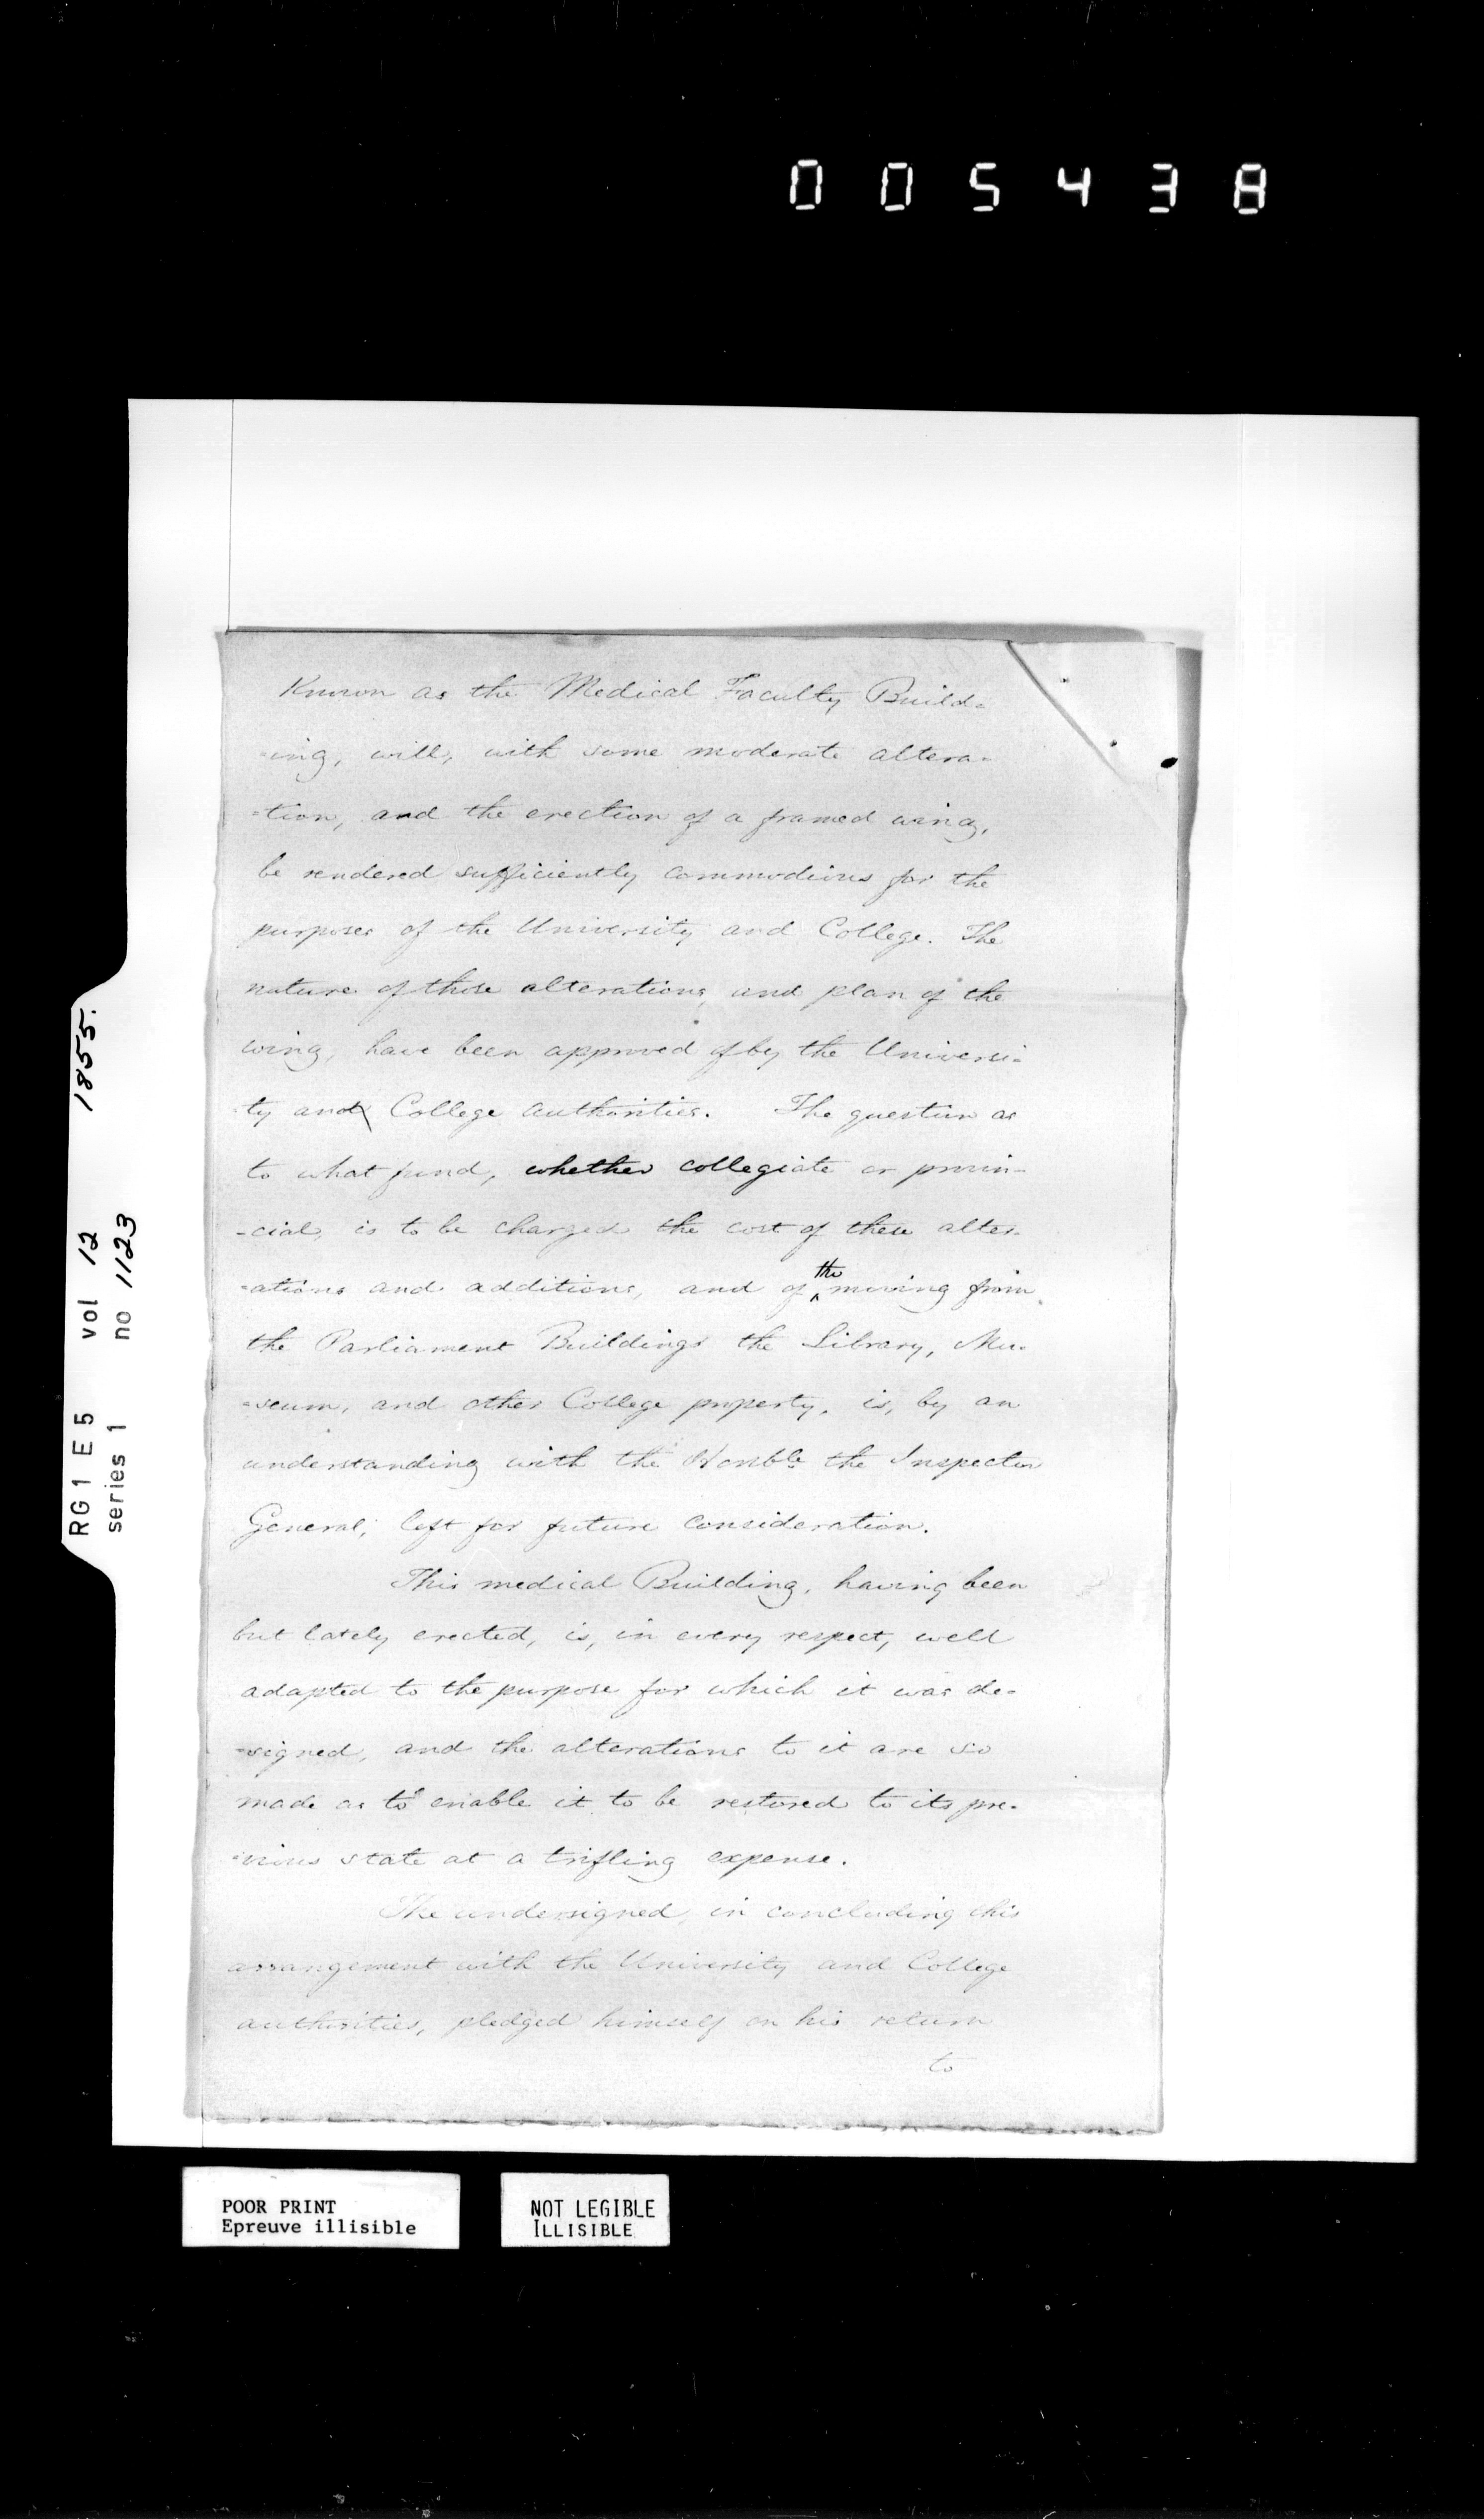 005438
Known as the Medical Faculty Build=
=ing, will, with some moderate altera=
=tion, and the erection of a framed wing,
be rendered sufficiently commodious for the
purposes of the University and College. The
nature of those alterations, and plan of the
wing, have been approved of by the Universi=
ty and College authorities. The question as
to what fund, whether collegiate or provin=
=cial, is to be charged the cost of these alter=
=ations and additions, and of the moving from
the Parliament Buildings the Library, Mu=
=seum, and other College property, is, by an
understanding with the Honble the Inspector
General, left for future consideration.
This medical Building, having been
but lately erected, is, in every respect, well
adapted to the purpose for which it was de=
=signed, and the alterations to it are so
made as to enable it to be restored to its pre=
=vious state at a trifling expense.
The undersigned, in concluding this
arrangement with the University and College
authorities, pledged himself on his return
to
RG1 E5 vol 12 1855.
series 1 no 1123
POOR PRINT
Epreuve illisible
NOT LEGIBLE
ILLISIBLE